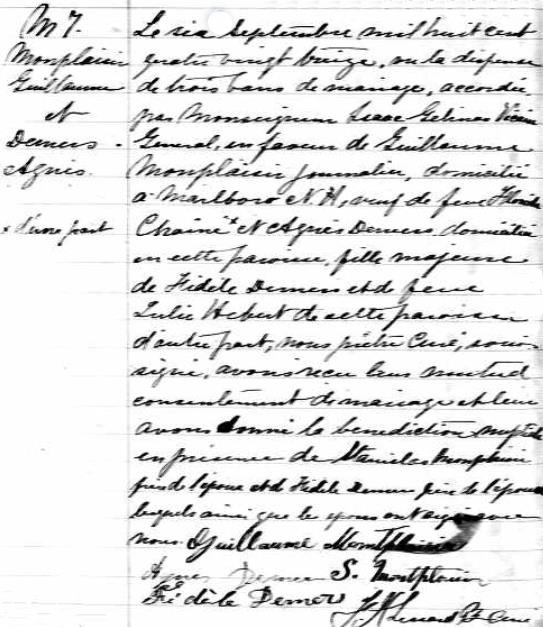 M 7.
Monplaisir
Guillaume
et
Demers
Agnès.
x d'une part
Le six septembre mil huit cent
quatre vingt treize, vu la dispense
de trois bans de mariage, accordée
par Monseigneur Isaac Gelinas Vicaire
Général, en faveur de Guillaume
Monplaisir journalier, domicilié
à Marlboro N H, veuf de feue
Chainé x et Agnès Demers domiciliée
en cette paroisse, fille majeure
de Fidèle Demers et de feue
Julie Hebert de cette paroisse
d'autre part, nous prêtre Curé, sous-
signé, avons reçu leur mutuel
consentement de mariage et leur
avons donné la bénédiction nuptiale
en présence de Stanislas Monplaisir
père de l'époux et de Fidèle Demers père de l'épouse
lesquels ainsi que les époux ont signé avec
nous. Guillaume Montplaisir
Agnes Demers S. Montplaisir
Fidèle Demers Ptre Curé